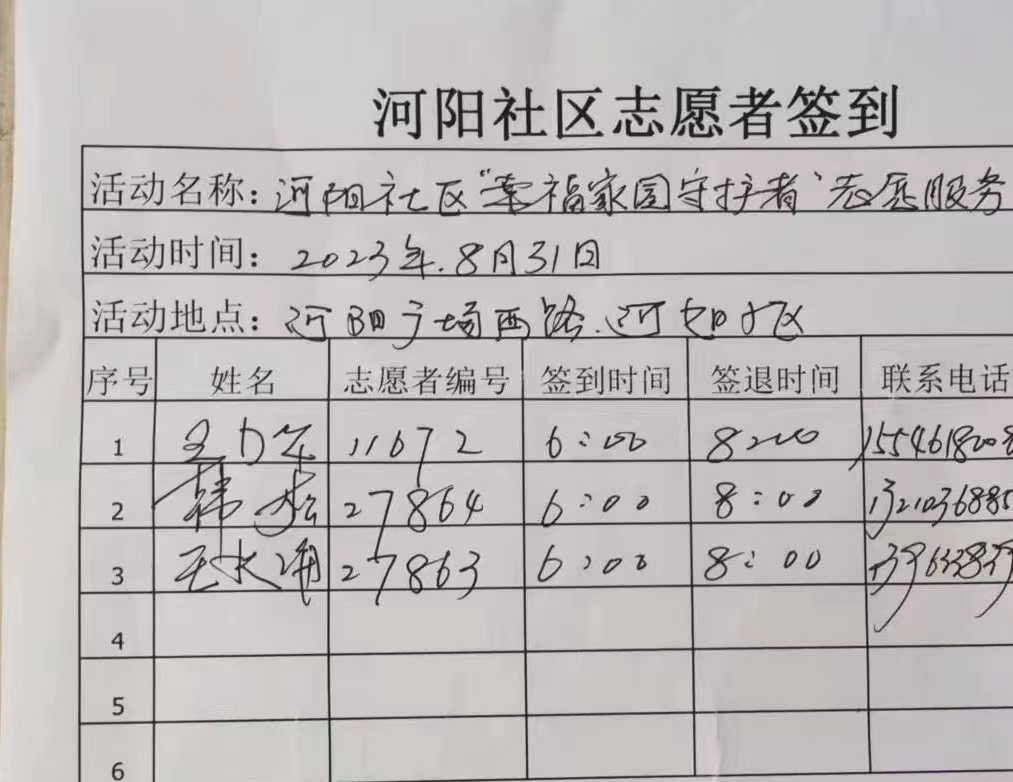 河阳社区志愿者签到
活动名称：河阳社区“幸福家园守护者”志愿服务
活动时间：2023年.8月31日
活动地点：河阳广场西路.河阳小区
序号 姓名 志愿者编号 签到时间 签退时间 联系电话
1 11672 6:00 8:00 1554618008
2 韩松 27864 6:00 8:00 1321036885
3 王大海 27863 6:00 8:00
4
5
6